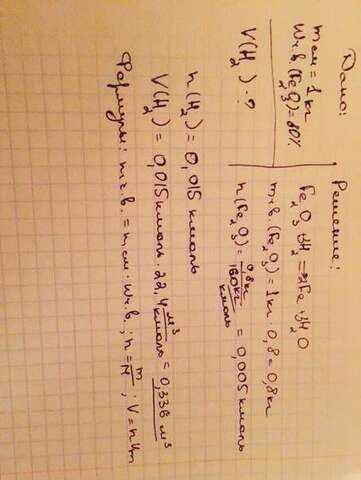 Дано:
mсм = 1 кг
Wч.в.(Fe₂O₃) = 80%
V(H₂) - ?
Решение:
Fe₂O₃ + 3H₂ = 2Fe + 3H₂O
mч.в.(Fe₂O₃) = 1 кг · 0,8 = 0,8 кг
n(Fe₂O₃) = 0,8 кг / 160 кг/кмоль = 0,005 кмоль
n(H₂) = 0,015 кмоль
V(H₂) = 0,015 кмоль · 22,4 м³/кмоль = 0,336 м³
Формулы: mч.в. = mсм · Wч.в.; n = m/M; V = nVm